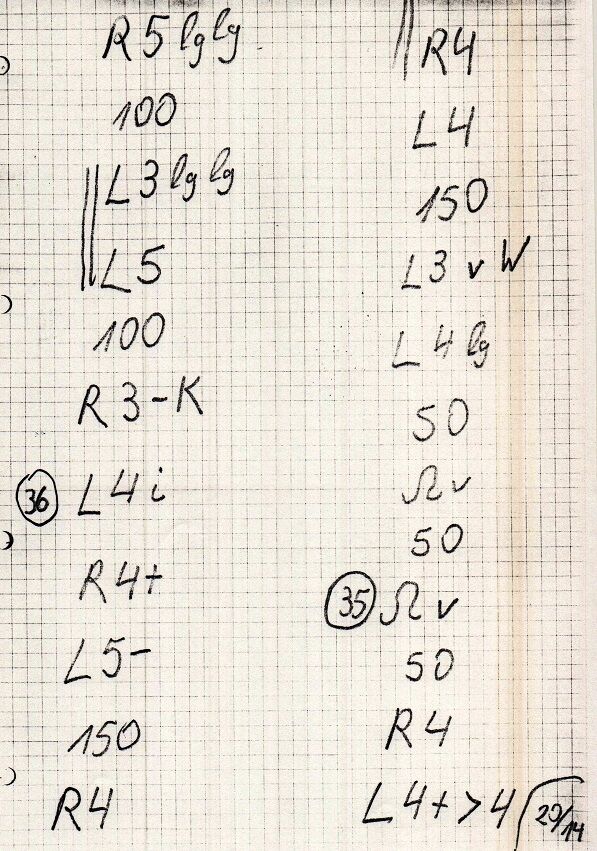 R 5 lg lg
100
L 3 lg lg
L 5
100
R 3 - K
36 L 4 i
R 4 +
L 5 -
150
R 4
R 4
L 4
150
L 3 v W
L 4 lg
50
Ω v
50
35 Ω v
50
R 4
L 4 + > 4 20/14